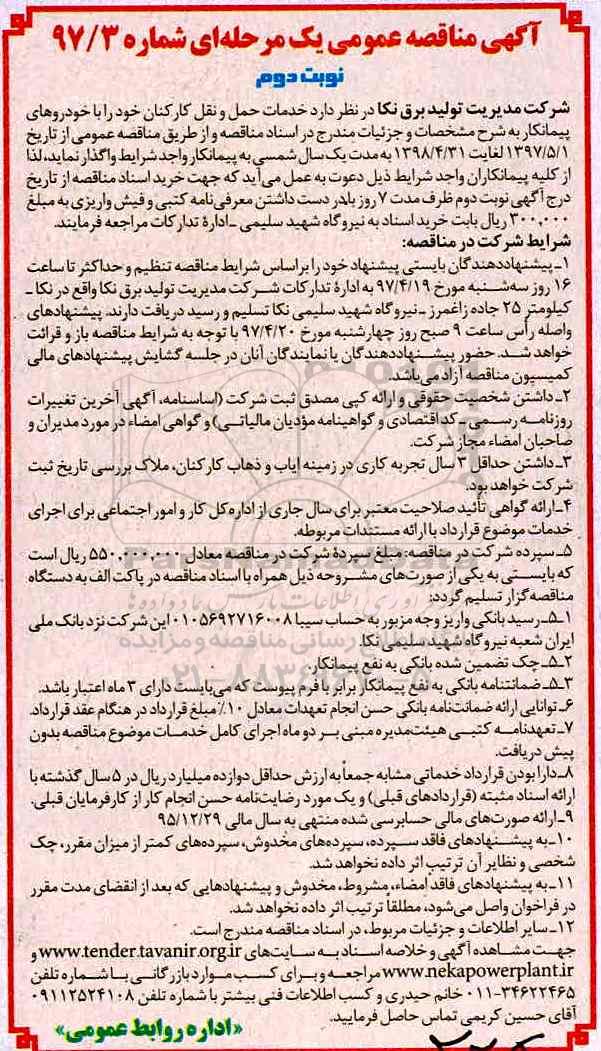 آگهی مناقصه عمومی یک مرحله‌ای شماره ۹۷/۳
نوبت دوم
شرکت مدیریت تولید برق نکا در نظر دارد خدمات حمل و نقل کارکنان خود را با خودروهای
پیمانکار به شرح مشخصات و جزئیات مندرج در اسناد مناقصه و از طریق مناقصه عمومی از تاریخ
۱۳۹۷/۵/۱ لغایت ۱۳۹۸/۴/۳۱ به مدت یک سال شمسی به پیمانکار واجد شرایط واگذار نماید، لذا
از کلیه پیمانکاران واجد شرایط ذیل دعوت به عمل می‌آید که جهت خرید اسناد مناقصه از تاریخ
درج آگهی نوبت دوم ظرف مدت ۷ روز با در دست داشتن معرفی‌نامه کتبی و فیش واریزی به مبلغ
۳۰۰,۰۰۰ ریال بابت خرید اسناد به نیروگاه شهید سلیمی ـ ادارهٔ تدارکات مراجعه فرمایند.
شرایط شرکت در مناقصه:
۱ـ پیشنهاددهندگان بایستی پیشنهاد خود را براساس شرایط مناقصه تنظیم و حداکثر تا ساعت
۱۶ روز سه‌شنبه مورخ ۹۷/۴/۱۹ به ادارهٔ تدارکات شرکت مدیریت تولید برق نکا واقع در نکا ـ
کیلومتر ۲۵ جاده زاغمرز ـ نیروگاه شهید سلیمی نکا تسلیم و رسید دریافت دارند. پیشنهادهای
واصله رأس ساعت ۹ صبح روز چهارشنبه مورخ ۹۷/۴/۲۰ با توجه به شرایط مناقصه باز و قرائت
خواهد شد. حضور پیشنهاددهندگان یا نمایندگان آنان در جلسه گشایش پیشنهادهای مالی
کمیسیون مناقصه آزاد می‌باشد.
۲ـ داشتن شخصیت حقوقی و ارائه کپی مصدق ثبت شرکت (اساسنامه، آگهی آخرین تغییرات
روزنامه رسمی ـ کد اقتصادی و گواهینامه مؤدیان مالیاتی) و گواهی امضاء در مورد مدیران و
صاحبان امضاء مجاز شرکت.
۳ـ داشتن حداقل ۳ سال تجربه کاری در زمینه ایاب و ذهاب کارکنان، ملاک بررسی تاریخ ثبت
شرکت خواهد بود.
۴ـ ارائه گواهی تأئید صلاحیت معتبر برای سال جاری از اداره‌کل کار و امور اجتماعی برای اجرای
خدمات موضوع قرارداد با ارائه مستندات مربوطه.
۵ـ سپرده شرکت در مناقصه: مبلغ سپردهٔ شرکت در مناقصه معادل ۵۵۰,۰۰۰,۰۰۰ ریال است
که بایستی به یکی از صورت‌های مشروحه ذیل همراه با اسناد مناقصه در پاکت الف به دستگاه
مناقصه‌گزار تسلیم گردد:
۵ـ۱ـ رسید بانکی واریز وجه مزبور به حساب سیبا ۰۱۰۵۶۹۲۷۱۶۰۰۸ این شرکت نزد بانک ملی
ایران شعبه نیروگاه شهید سلیمی نکا
۵ـ۲ـ چک تضمین شده بانکی به نفع پیمانکار.
۵ـ۳ـ ضمانتنامه بانکی به نفع پیمانکار برابر با فرم پیوست که می‌بایست دارای ۳ ماه اعتبار باشد.
۶ـ توانایی ارائه ضمانت‌نامه بانکی حسن انجام تعهدات معادل ۱۰٪ مبلغ قرارداد در هنگام عقد قرارداد.
۷ـ تعهدنامه کتبی هیئت‌مدیره مبنی بر دو ماه اجرای کامل خدمات موضوع مناقصه بدون
پیش دریافت.
۸ـ دارا بودن قرارداد خدماتی مشابه جمعاً به ارزش حداقل دوازده میلیارد ریال در ۵ سال گذشته با
ارائه اسناد مثبته (قراردادهای قبلی) و یک مورد رضایت‌نامه حسن انجام کار از کارفرمایان قبلی.
۹ـ ارائه صورت‌های مالی حسابرسی شده منتهی به سال مالی ۹۵/۱۲/۲۹
۱۰ـ به پیشنهادهای فاقد سپرده، سپرده‌های مخدوش، سپرده‌های کمتر از میزان مقرر، چک
شخصی و نظایر آن ترتیب اثر داده نخواهد شد.
۱۱ـ به پیشنهادهای فاقد امضاء، مشروط، مخدوش و پیشنهادهایی که بعد از انقضای مدت مقرر
در فراخوان واصل می‌شود، مطلقاً ترتیب اثر داده نخواهد شد.
۱۲ـ سایر اطلاعات و جزئیات مربوط، در اسناد مناقصه مندرج است.
جهت مشاهده آگهی و خلاصه اسناد به سایت‌های www.tender.tavanir.org.ir و
www.nekapowerplant.ir مراجعه و برای کسب موارد بازرگانی با شماره تلفن
۰۱۱-۳۴۶۲۲۴۶۵ خانم حیدری و کسب اطلاعات فنی بیشتر با شماره تلفن ۰۹۱۱۲۵۲۴۱۰۸
آقای حسین کریمی تماس حاصل فرمایید.
«اداره روابط عمومی»